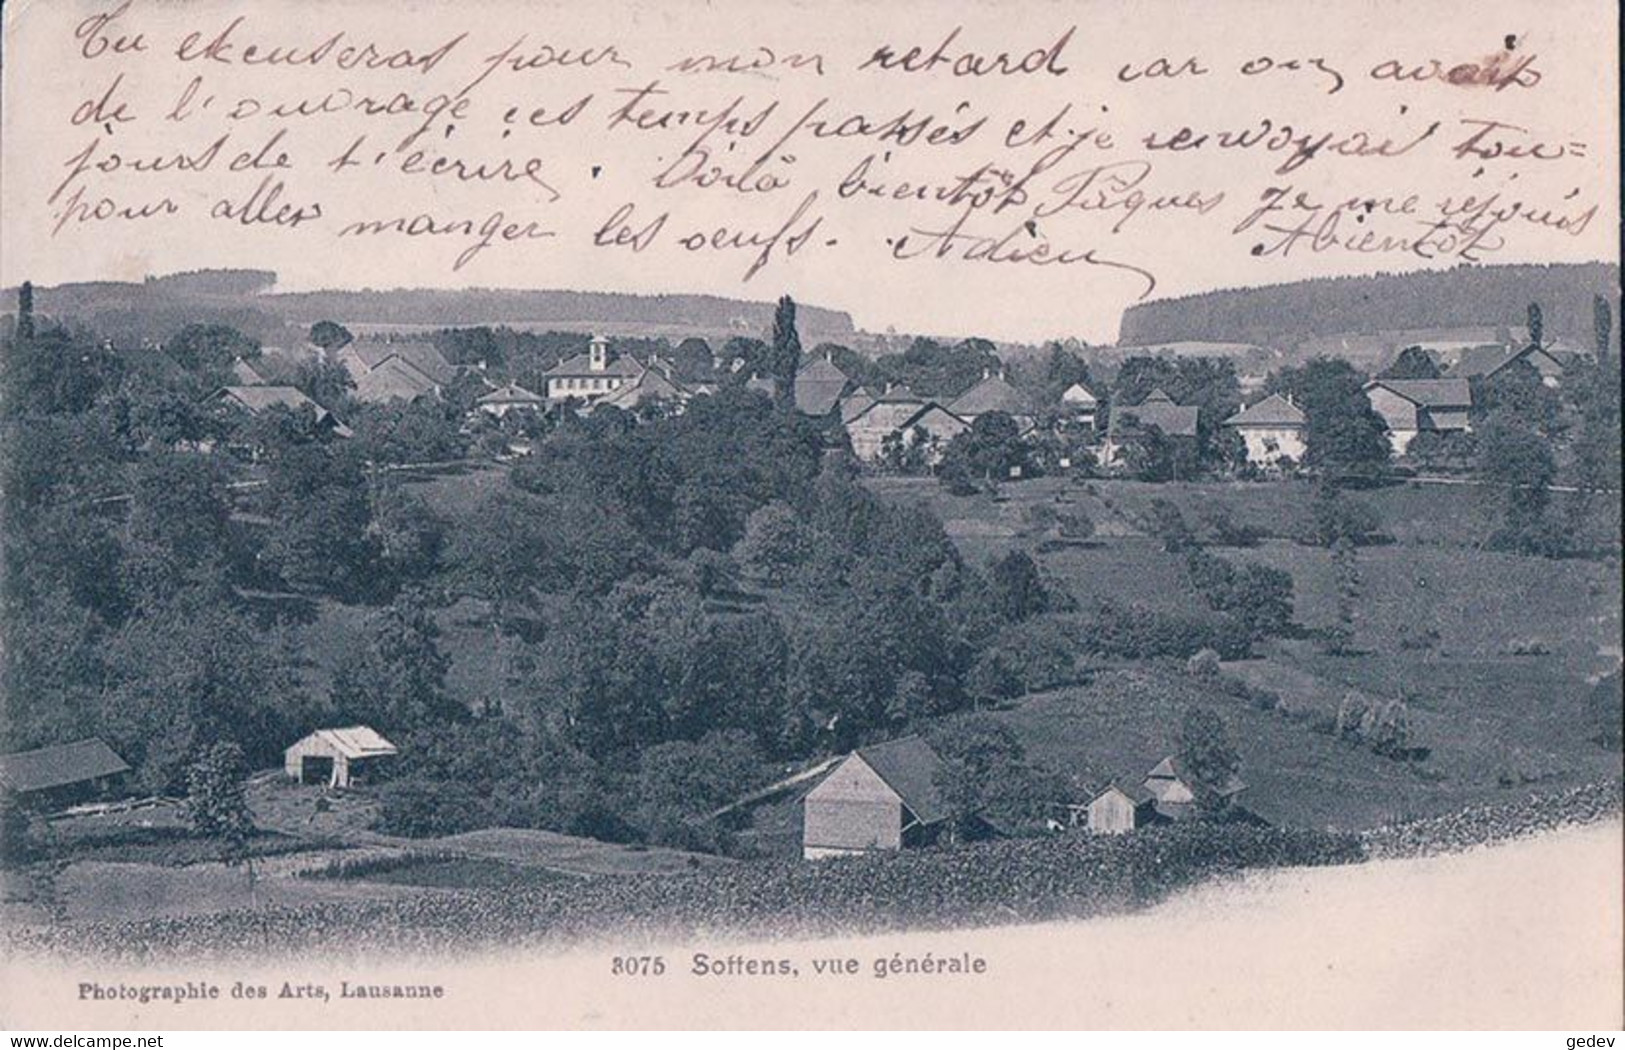 Tu ekcuseras pour mon retard car on avait
de l'ouvrage ces temps passés et je renvoyai tou=
jours de t'écrire. Voilà bientôt Pâques Je me réjouis
pour aller manger les oeufs. Adieu Abientôt
3075 Sottens, vue générale
Photographie des Arts, Lausanne
www.delcampe.net
gedev